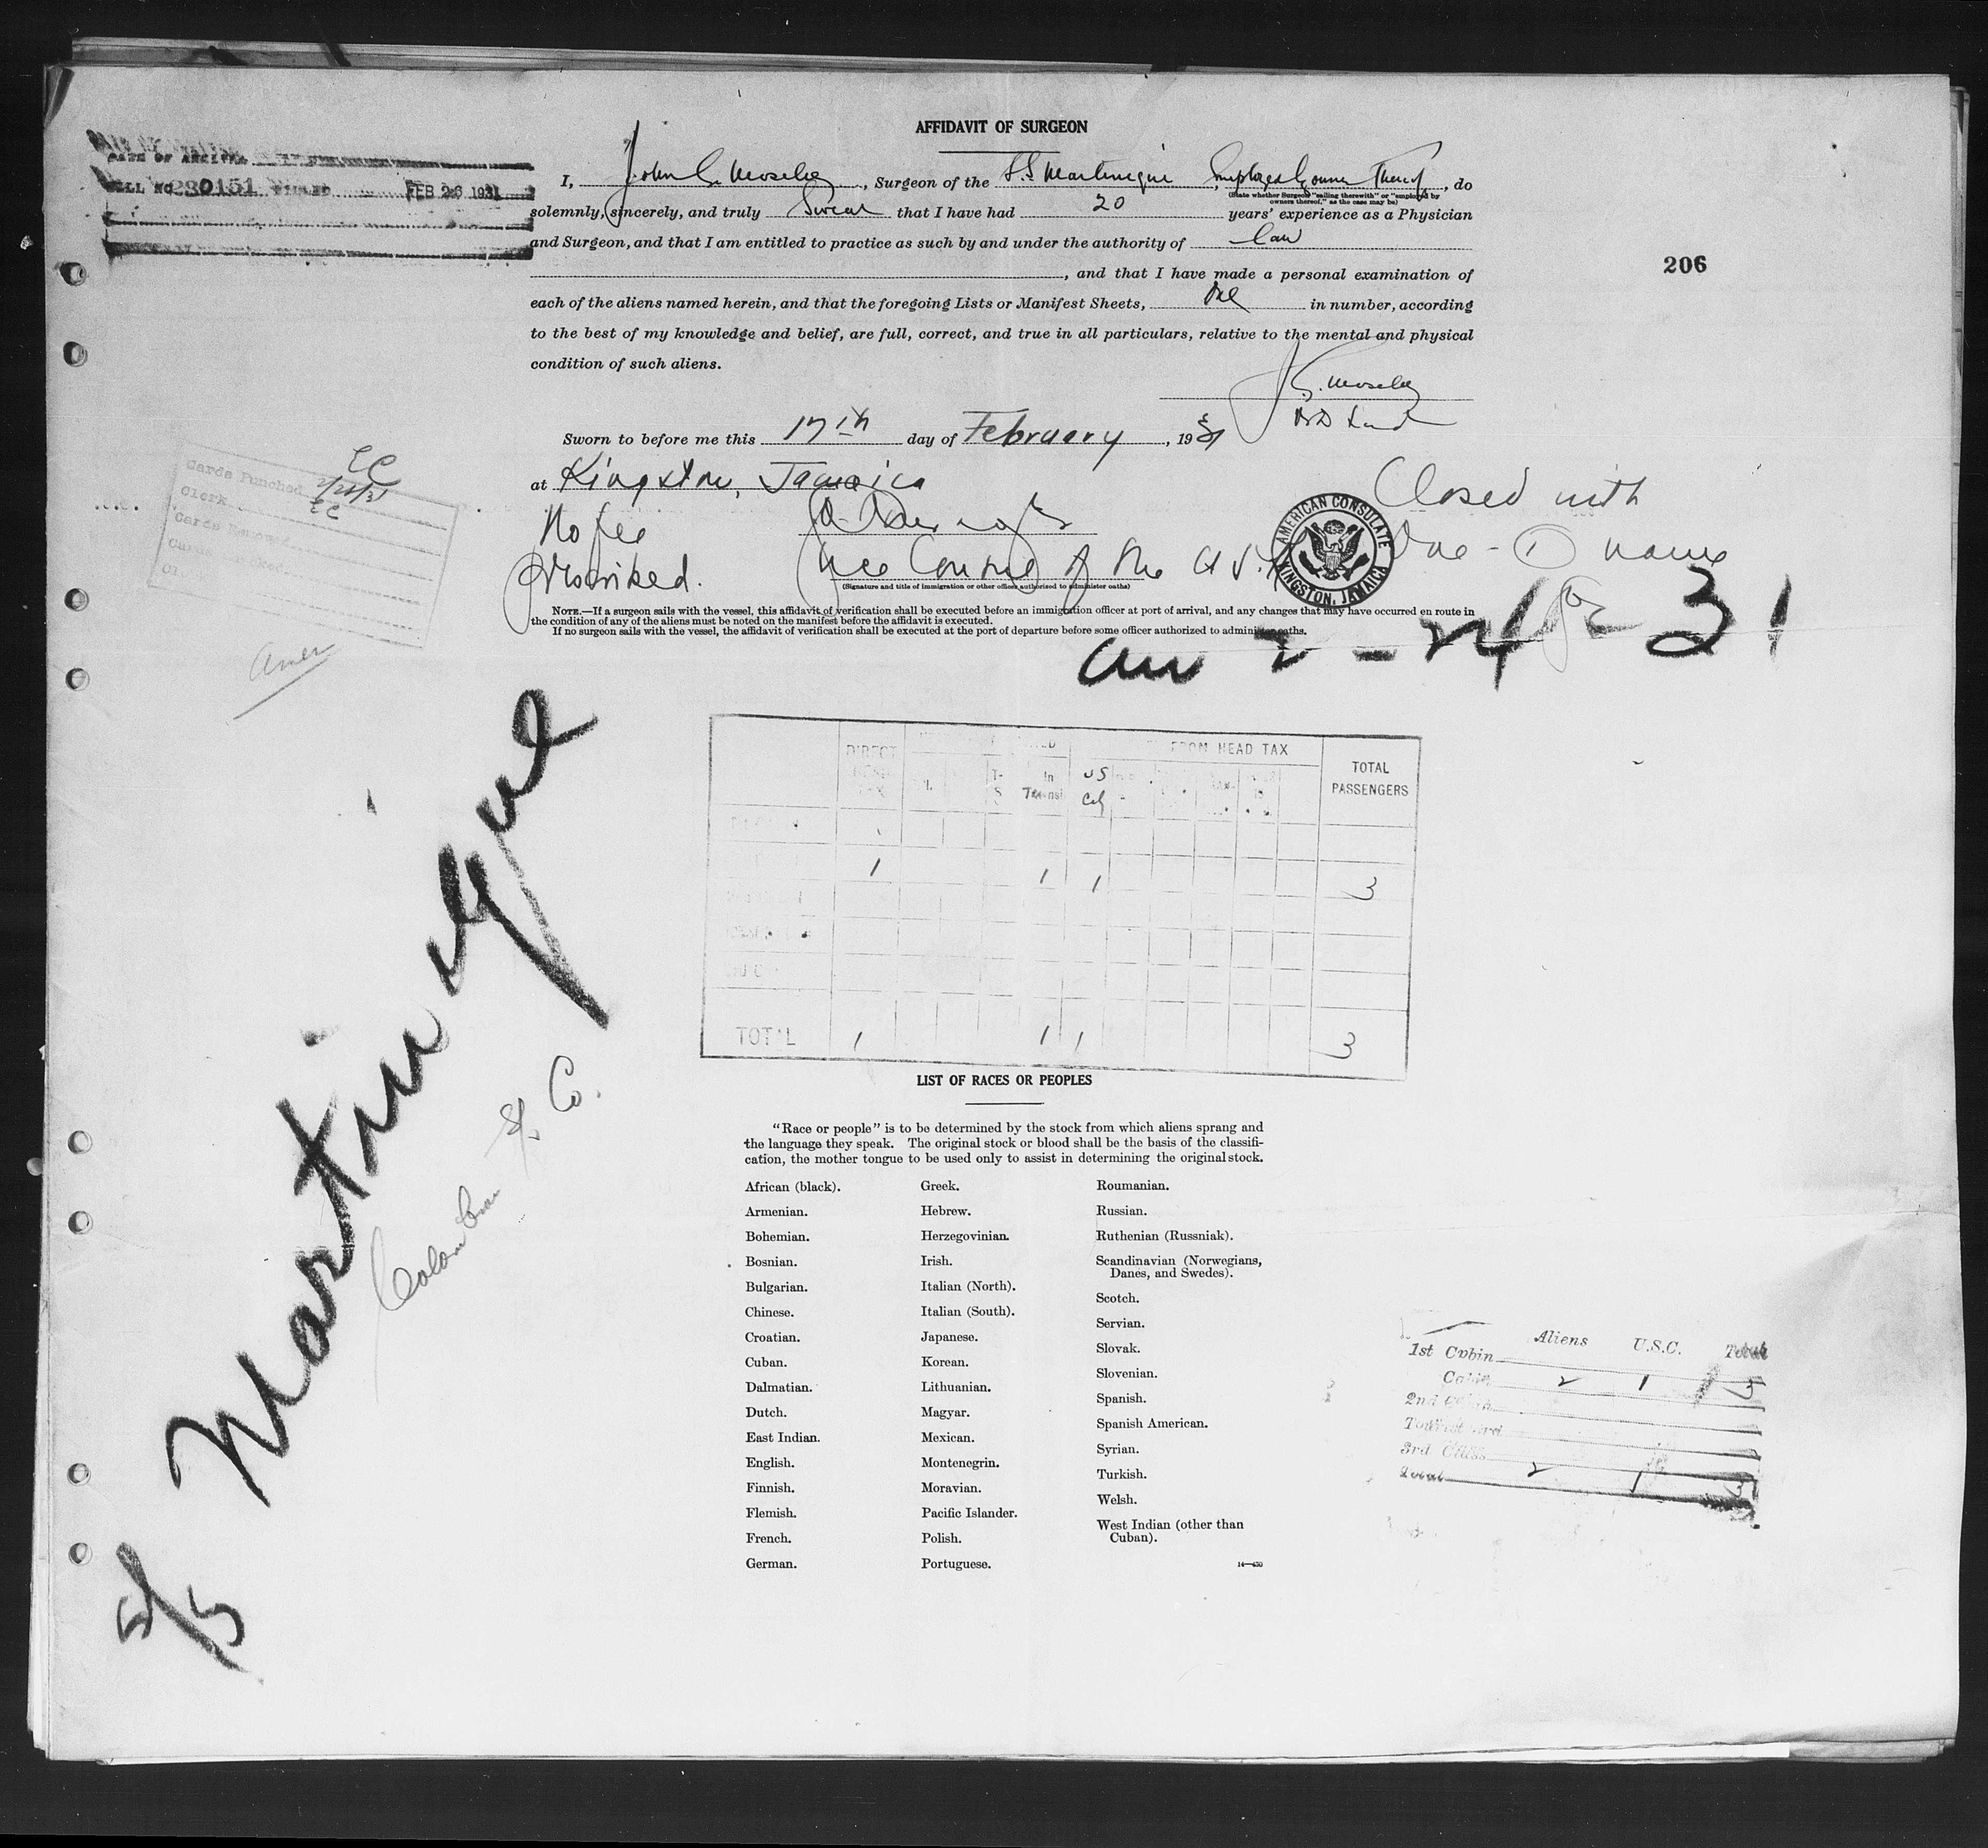 AFFIDAVIT OF SURGEON
DATE OF ARRIVAL
BILL NO 230151 FEB 26 1931
I, John G. Moseley, Surgeon of the S.S Martinique, Employed by owners Thereof, do
(State whether Surgeon "sailing therewith" or "employed by
owners thereof," as the case may be)
solemnly, sincerely, and truly Swear that I have had 20 years' experience as a Physician
and Surgeon, and that I am entitled to practice as such by and under the authority of law
206
, and that I have made a personal examination of
each of the aliens named herein, and that the foregoing Lists or Manifest Sheets, one in number, according
to the best of my knowledge and belief, are full, correct, and true in all particulars, relative to the mental and physical
condition of such aliens.
J.G. Moseley
Sworn to before me this 17th day of February, 1931
at Kingston, Jamaica
Cards Punched
Clerk
Cards Removed
No fee
prescribed.
Vice Consul of the U.S.A
(Signature and title of immigration or other officer authorized to administer oaths)
AMERICAN CONSULATE
KINGSTON, JAMAICA
Closed with
One - 1 name
NOTE.—If a surgeon sails with the vessel, this affidavit of verification shall be executed before an immigration officer at port of arrival, and any changes that may have occurred en route in
the condition of any of the aliens must be noted on the manifest before the affidavit is executed.
If no surgeon sails with the vessel, the affidavit of verification shall be executed at the port of departure before some officer authorized to administer oaths.
arr 2-24-31
S/S Martinique
Colombian S/S Co.
DIRECT FROM HEAD TAX TOTAL
PASSENGERS
In
Transit US
1 1 1 3
TOTAL 1 1 1 3
LIST OF RACES OR PEOPLES
"Race or people" is to be determined by the stock from which aliens sprang and
the language they speak. The original stock or blood shall be the basis of the classifi-
cation, the mother tongue to be used only to assist in determining the original stock.
African (black). Greek. Roumanian.
Armenian. Hebrew. Russian.
Bohemian. Herzegovinian. Ruthenian (Russniak).
Bosnian. Irish. Scandinavian (Norwegians,
Danes, and Swedes).
Bulgarian. Italian (North). Scotch.
Chinese. Italian (South). Servian.
Croatian. Japanese. Slovak.
Cuban. Korean. Slovenian.
Dalmatian. Lithuanian. Spanish.
Dutch. Magyar. Spanish American.
East Indian. Mexican. Syrian.
English. Montenegrin. Turkish.
Finnish. Moravian. Welsh.
Flemish. Pacific Islander. West Indian (other than
Cuban).
French. Polish.
German. Portuguese.
14—430
Aliens U.S.C. Total
1st Cabin
Cabin 2 1 3
2nd Cabin
Tourist 3rd
3rd Class
Total 2 1 3